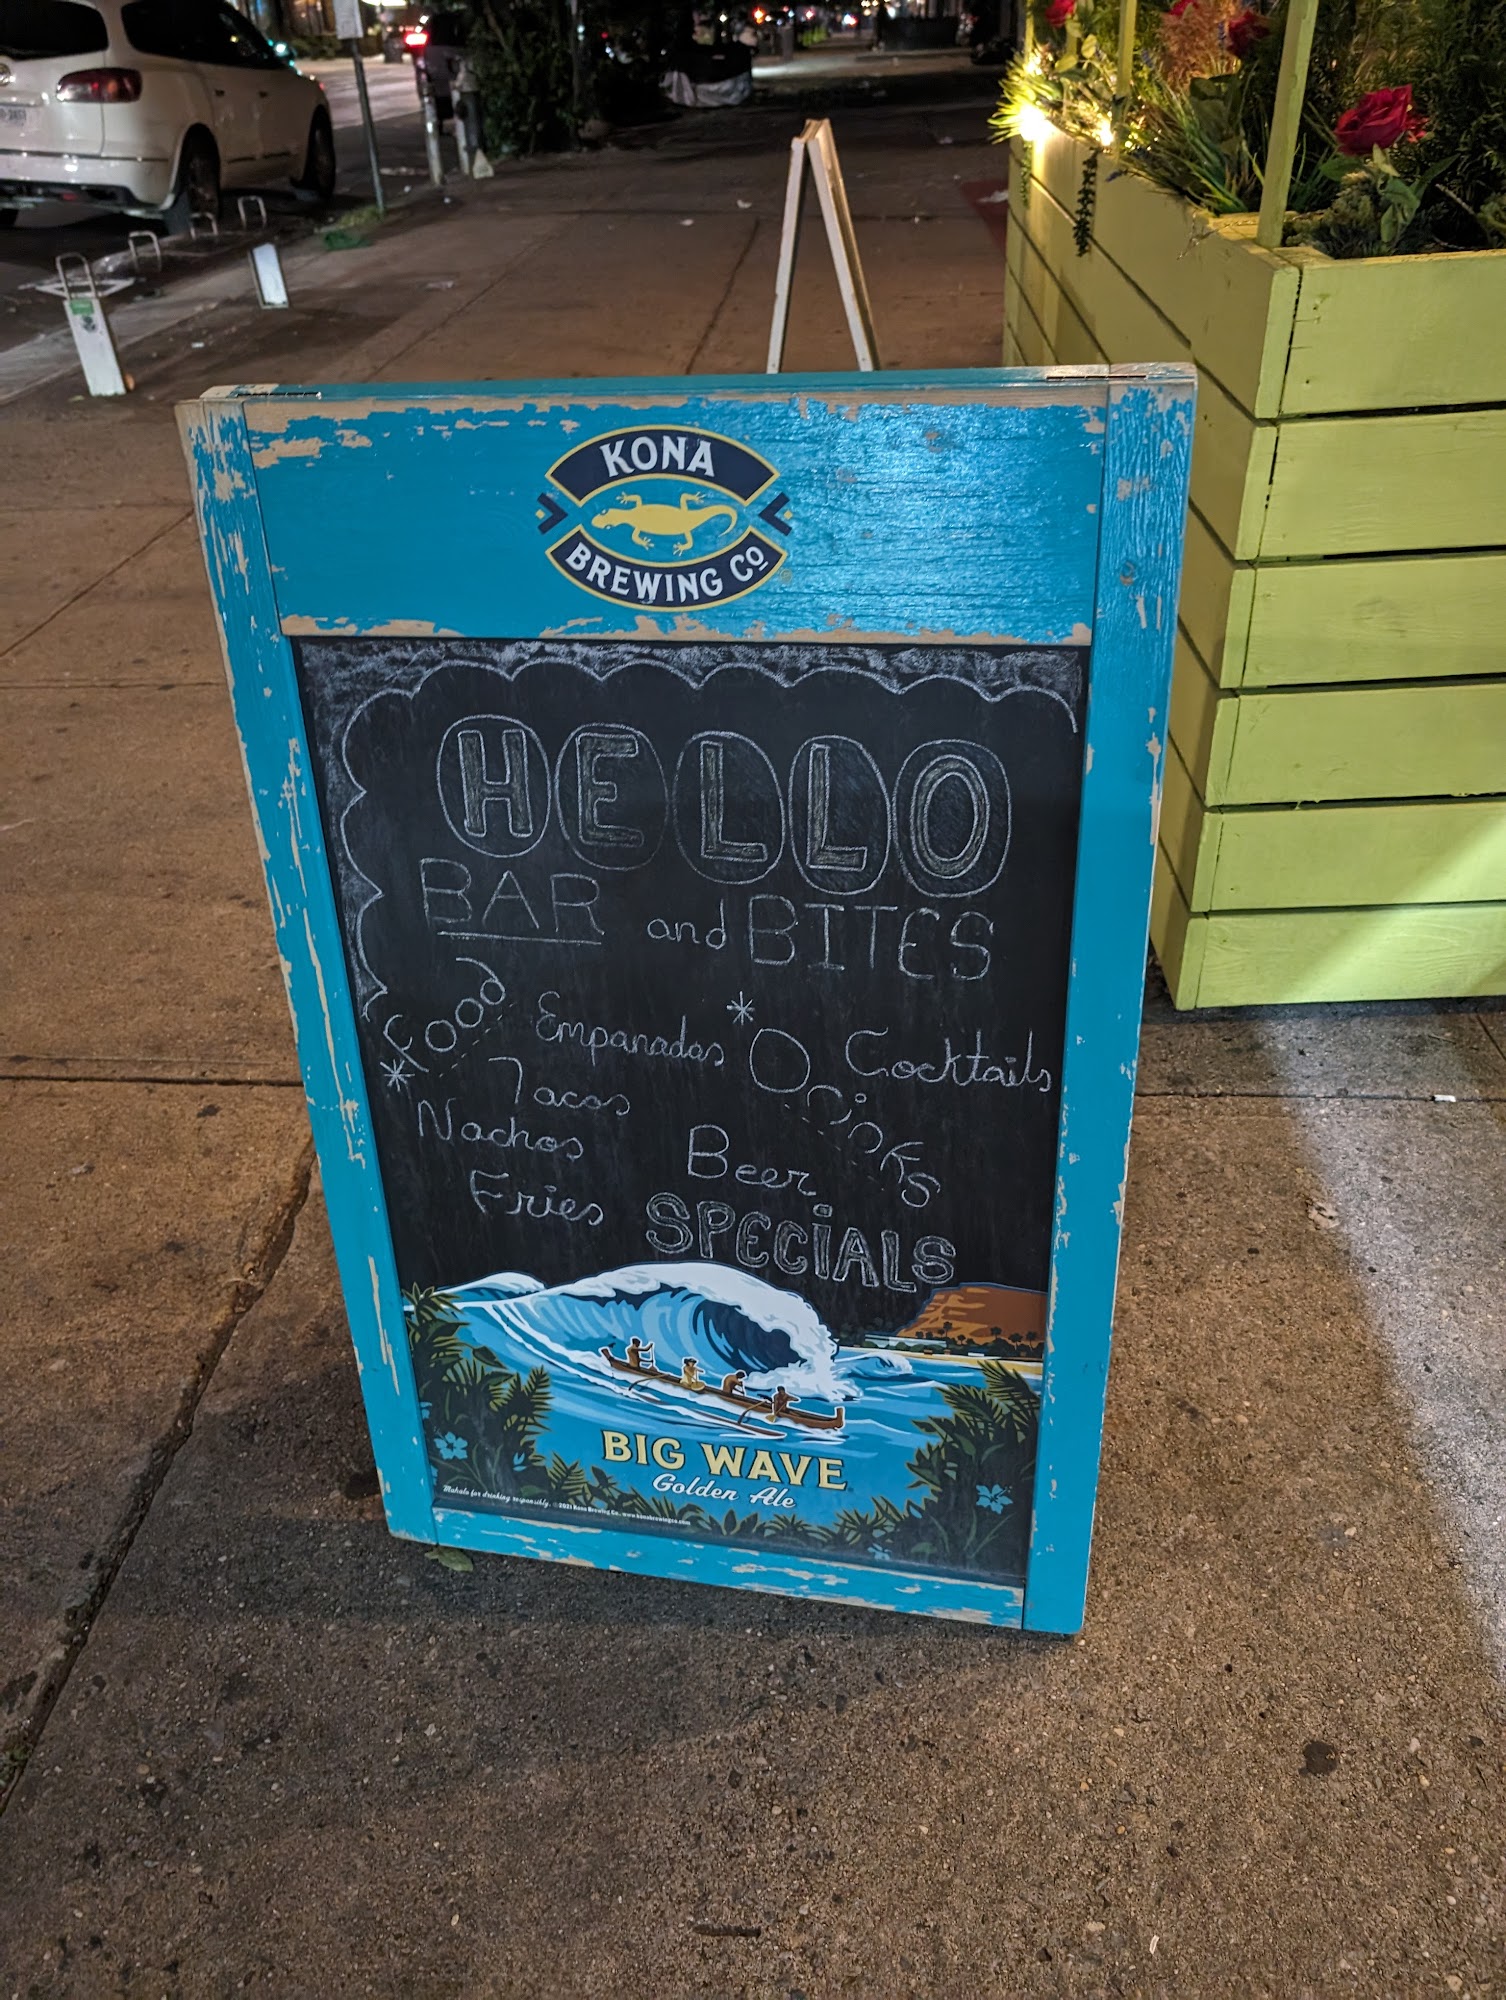 KONA
BREWING CO
HELLO
BAR and BITES
*Food
Empanadas
Tacos
Nachos
Fries
*Drinks
Cocktails
Beer
SPECiALS
BIG WAVE
Golden Ale
Mahalo for drinking responsibly. ©2021 Kona Brewing Co. www.konabrewingco.com